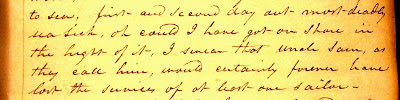 to sea, first and second day out most deadly
sea sick, oh could I have got on shore in
the hight of it, I swear that uncle Sam, as
they call him, would certainly forever have
lost the services of at least one sailor -